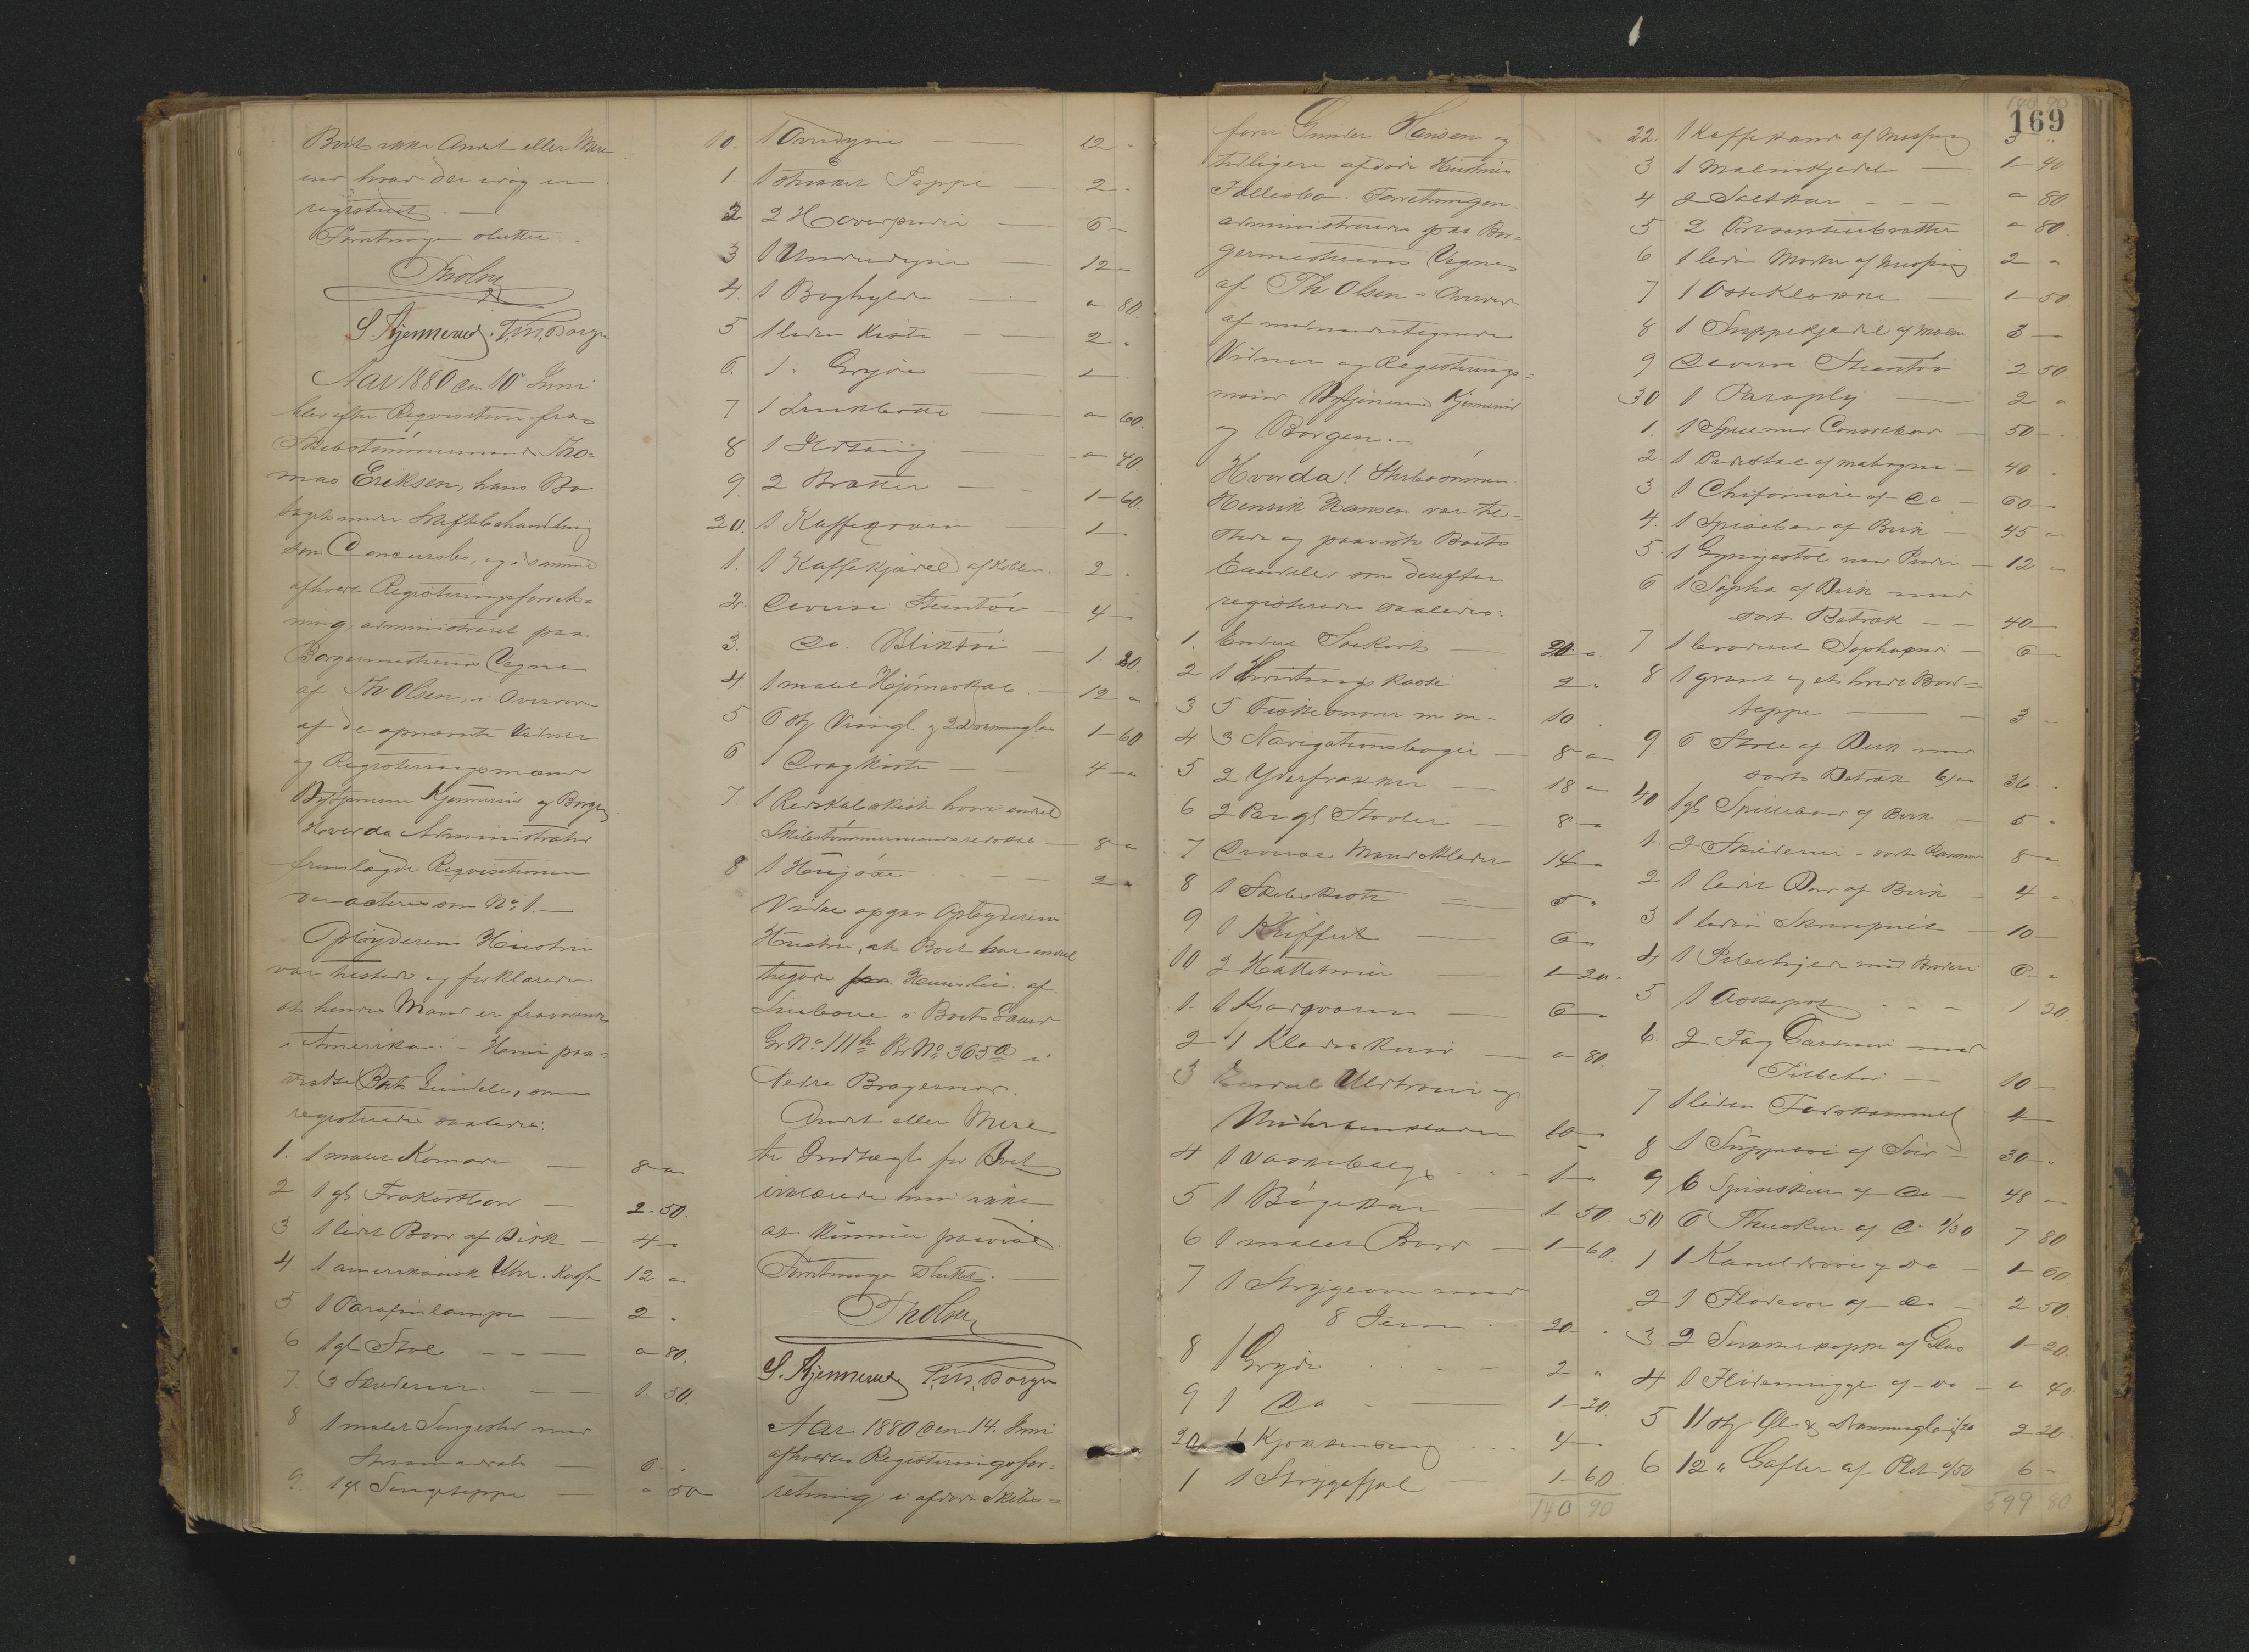 Boet ikke Andet eller Mere
end hvad der idag er
registreret. —
Forretningen sluttet.
ThOlsen
S. Kjennerud. T.M. Borgen
Aar 1880 den 10de Juni
blev efter Reqvisition fra
Skibstømmermand Tho=
mas Eriksen, hans Bo
taget under Skiftebehandling
som Concursbo, og i samme
afholdt Registreringsforret=
ning, administreret paa
Borgermesterens Vegne
af Th Olsen, i Overvær
af de opnævnte Vidner
og Registreringsmænd
Bytjenerne Kjennerud og Borgen
Hvorda Administrator
fremlagde Reqvisitionen
der acteres som No 1. —
Opbyderens Hustru
var tilstede og forklarede
at hendes Mand er fraværende
i Amerika. — Hun paa=
viste Boets Eiendele, som
registreredes saaledes:
1. 1 malet Komode — 8 "
2 1 gl Frokostbord 2. 50.
3 1 lidet Bord af Birk — 4 "
4 1 amerikansk Uhr. Kasse 12 "
5 1 Parafinlampe — 2 "
6 1 gl Stol — — — " 80.
7. 3 Skilderier. — — 1. 50.
8 1 malet Sengested med
Straamadrats — 6. "
9. 1 gl Sengeteppe — " 50
10. 1 Overdyne — 12 "
1. 1 strikket Teppe — 2 "
2 2 Hovedpuder — 6 —
3 1 Underdyne — 12 —
4. 1 Boghylde — " 80.
5 1 liden Kiste — 2 "
6. 1. Gryde — 1 —
7 1 — " 60.
8 1 Ildtang — " 40.
9. 2 Brætter — — 1 — 60.
20. 1 Kaffeqværn — 1 —
1. 1 Kaffekjædel af Kobber. 2 "
2. Diverse Steentøi — 4 —
3. Do. Bliktøi — 1. 20.
4. 1 malet Hjørneskab. — 12 "
5 6 Stk Viingl. og 2 Drammeglas 1 — 60
6 1 Dragkiste — — 4 — "
7. 1 Redskabskiste hvori endel
Skibstømmermandsredskab — 8 "
8 1 — — 2 "
Videre opgav Opbyderens
Hustru, at Boet har endel
tilgode for Huusleie af
Leieboere i Boets Gaard
Gr No 111 b Br No 365 a i
Nedre Bragernæs.
Andet eller Mere
til Indtægt for Boet
erklærede hun ikke
at kunne paavise.
Forretningen sluttet. —
ThOlsen
S. Kjennerud T.M. Borgen
Aar 1880 den 14. Juni
afholdtes Registreringsfor=
retning i afdøde Skibs=
169
fører Gunder Hansen og
tidligere afdøde Hustrues
Fællesbo. Forretningen
administreredes paa Bor=
germesterens Vegne
af Th Olsen i Overvær
af medundertegnede
Vidner og Registrerings=
mænd Bytjenerne Kjennerud
og Borgen. —
Hvorda! Skibstømmerm.
Henrik Hansen var til=
stede og paaviste Boets
Eiendele som derefter
registreredes saaledes:
1. Endel Søekort — 20 — "
2 1 kasse 2 "
3 5 Fiskesnører m m — 10.
4 3 Navigationsbøger — 8 "
5 2 Yderfrakker — 18 "
6 2 Par gl Støvler — 8 — "
7 Diverse Mandsklæder 14 "
8 1 Skibskiste — 5 "
9 1 Kuffert — 6 "
10 2 — 1 — 20.
1. 1 Kjørqværn — 6 "
2 1 Klædeskurv — " 80.
3 Endel Uldtrøier og
Underbenklæder 10 —
4 1 Vaskebalge — 1 "
5 1 Bøgekar — 1 50
6 1 malet Bord — 1 — 60.
7 1 Strygeovn med
8 Jern — 20 — "
8 1 Gryde — 2 "
9 1 Do — 1 — 20.
20 1 Kjøkkenseng 4 —
1 1 Strygefjæl — 1 — 60
140 90
140 90
22. 1 Kaffekande af Messing 3 "
3 1 Malmkjedel — 1 — 40
4 2 Saltkar — — — " 80.
5 2 Presenteerbrætter " 80.
6 1 liden Morter af Messing 2 "
7 1 Osteklokke — 1 — 50.
8 1 Suppekjedel af Malm 3 —
9 Diverse Steentøi 2 50.
30 1 Paraply — 2 "
1. 1 Speil med Consolbord — 50 — "
2. 1 af mahogni — 40 "
3 1 Chifoniere af Do — 60 —
4. 1 Spisebord af Birk — 45 "
5. 1 Gyngestol med Pude — 12 "
6 1 Sopha af Birk med
sort Betræk — — 40 —
7 1 broderet Sophapude — 6 "
8 1 grønt og et hvidt Bord=
teppe — 3 —
9. 6 Stole af Birk med
sorte Betræk 6/ " 36 "
40 1 gl Spillebord af Birk — 5 "
1. 2 Skilderier i sort Ramme 8 "
2 1 lidet Bord af Birk — 4 "
3 1 liden Skrivepult — 10 —
4 1 Pibehylde med Broderi 6 "
5 1 Askepot — 1 20.
6. 2 Fag Gardiner med
Tilbehør — 10 —
7 1 liden Fodskammel 4 —
8 1 Suppeøse af Sølv — 30 "
9 6 Spiseskeer af Do — 48 —
50 6 Theskeer af Do 1/30 7 80
1 1 Kaneldaase af Do — 1 — 60.
2 1 Flødeøse af — Do — 2 50.
3 2 Sukkerkopper af Glas 1 — 20.
4 1 Flødemugge af — Do — " 40.
5 11 Stk Øl & Drammeglas /20 2 20.
6 12 " Gafler af Plet /50 6 "
599 80